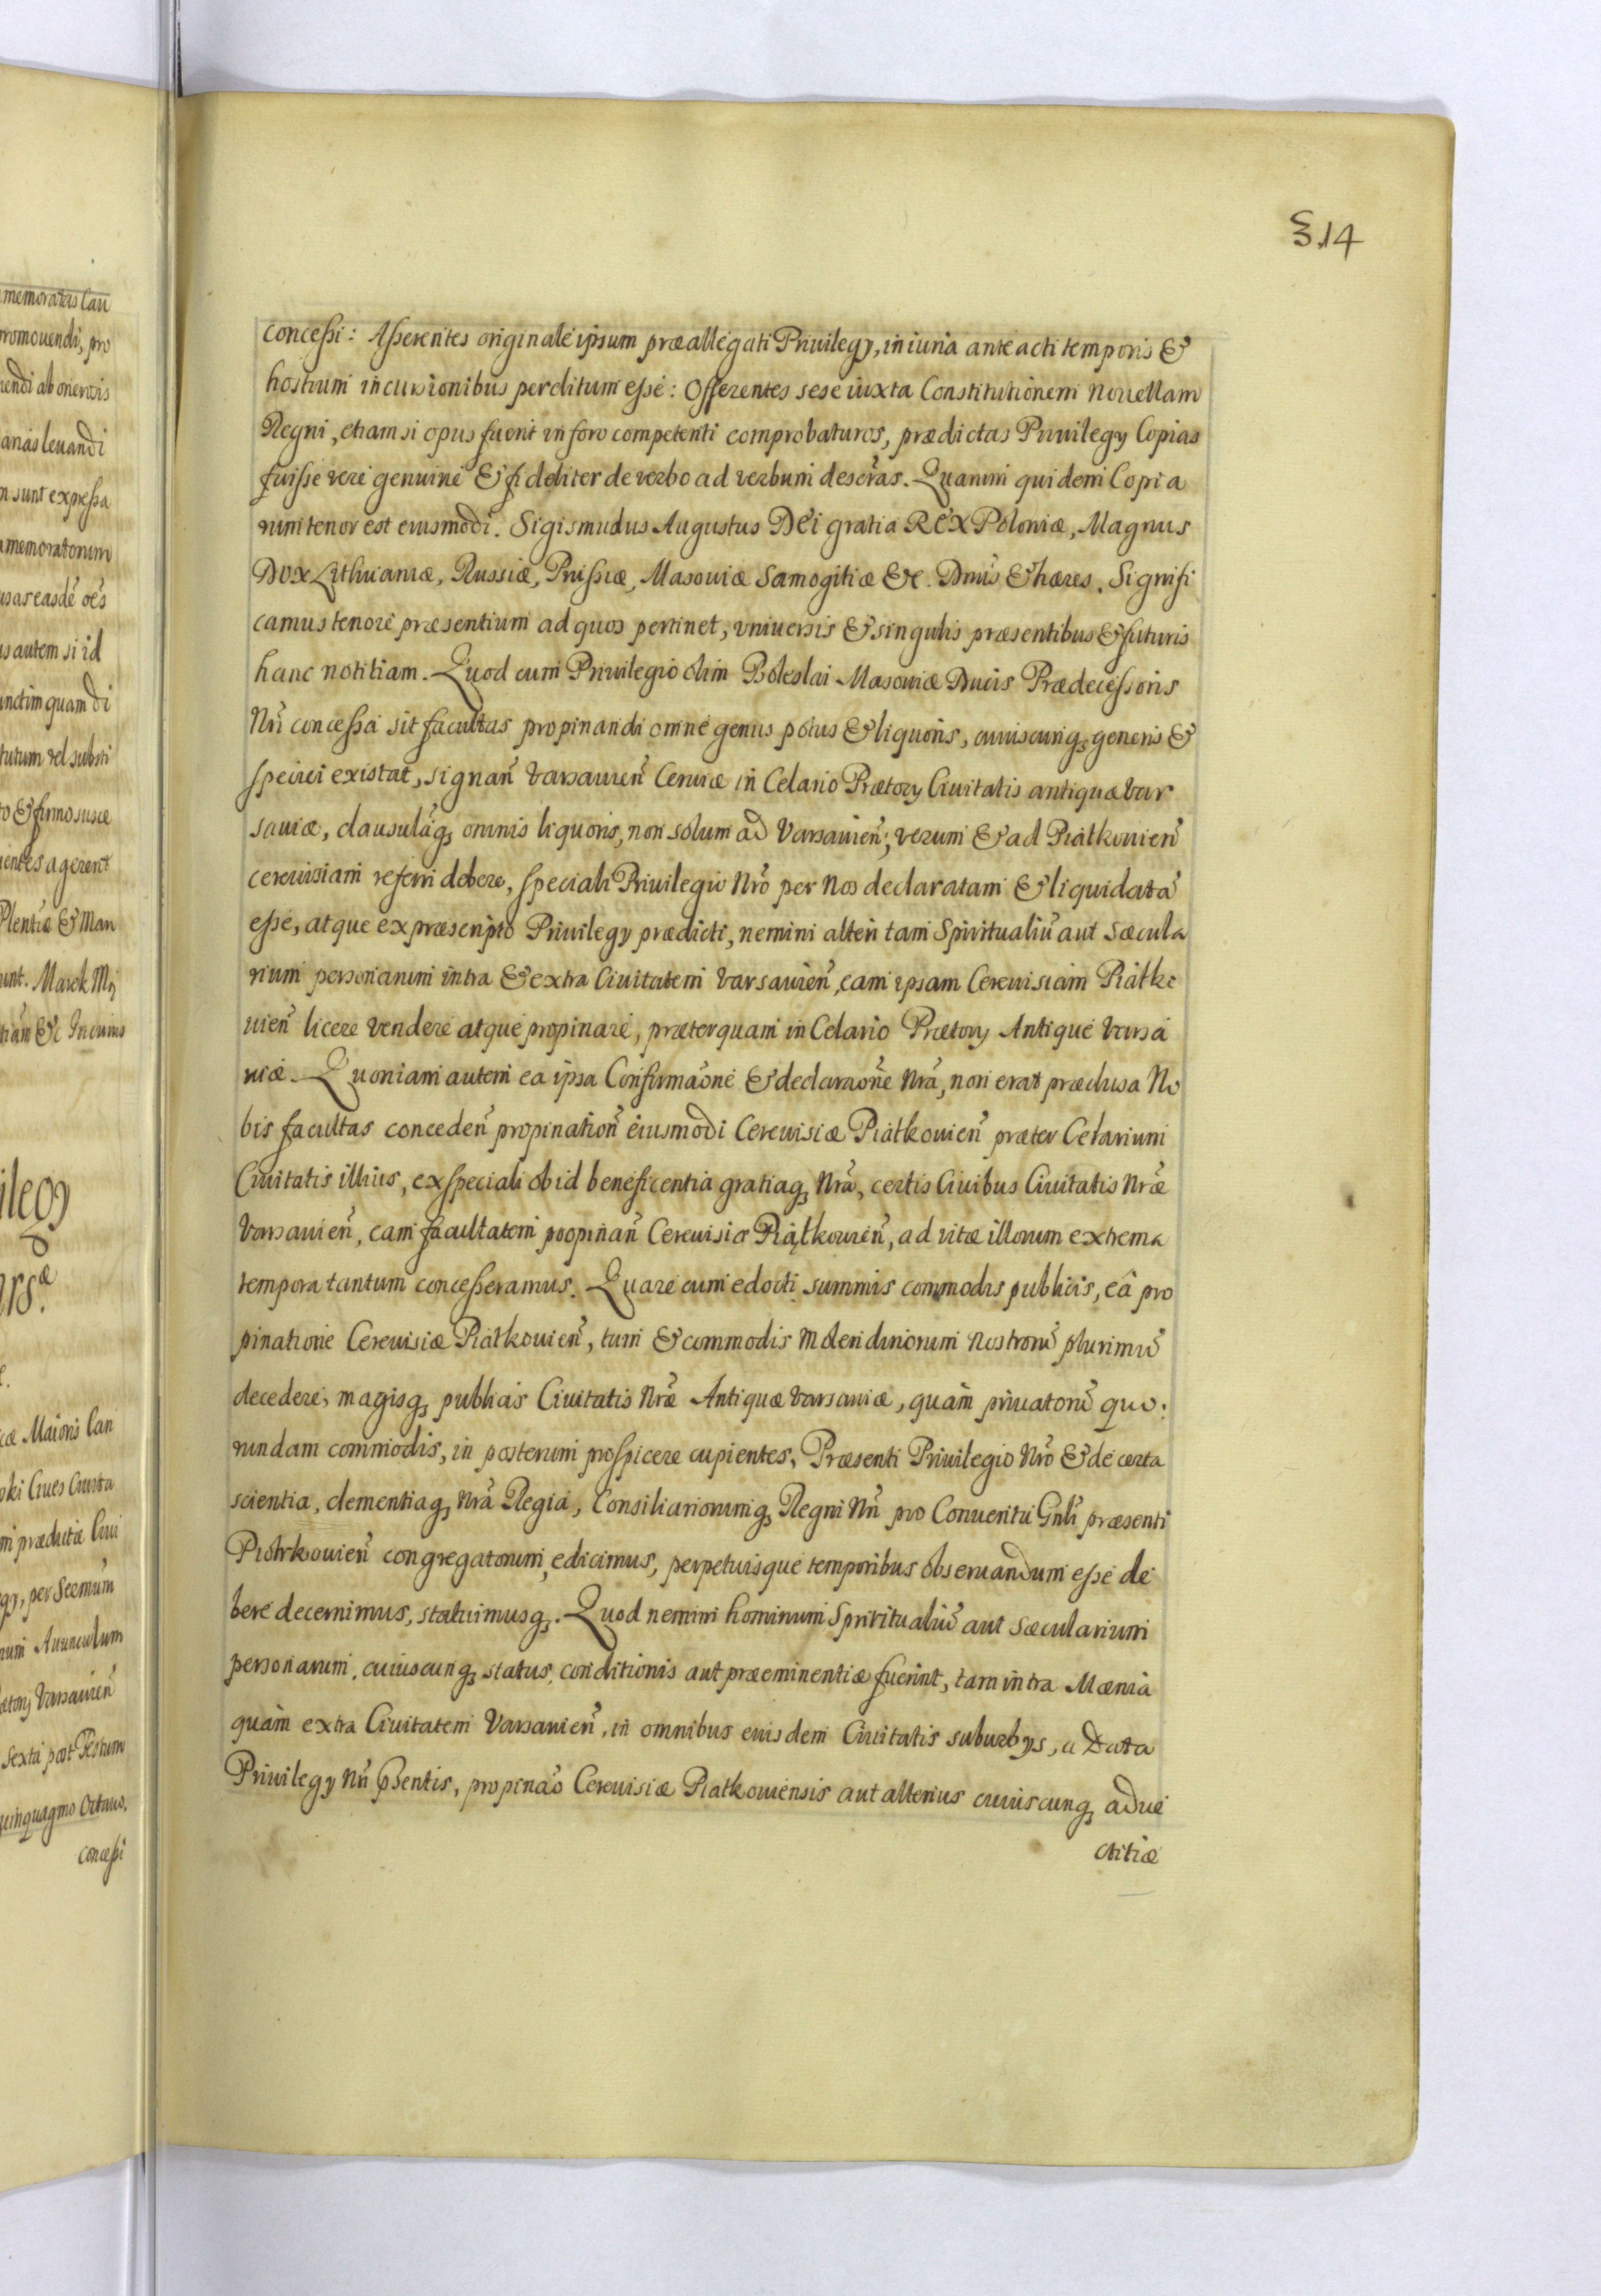 314
concessi: Asserentes originale ipsum præallegati Priuilegy, iniuria ante acti temporis &
hostium incursionibus perditum esse: Offerentes sese iuxta Constitutionem Nouellam
Regni, etiam si opus fuerit in foro competenti comprobaturos, prædictas Priuilegy Copias
fuisse vere genuine & fideliter de verbo ad verbum descr̃as. Quarum quidem Copia
rum tenor est eiusmodi. Sigismudus Augustus DEi gratia REX Poloniæ, Magnus
DUX Lithuaniæ, Russiæ, Prussiæ, Masouiæ Samogitiæ &c. Dnũs & hæres. Signifi
camus tenore præsentium ad quos pertinet, vniuersis & singulis præsentibus & futuris
hanc notitiam. Quod cum Priuilegio olim Boleslai Masouiæ Ducis Prædecessoris
Nr̃i concessa sit facultas propinandi omne genus potus & liquoris, cuiuscunq, generis &
speciei existat, signañ Varsauieñ Ceruiæ in Celario Prætory Ciuitatis antiquæ Var
sauiæ, clausulãq, omnis liquoris, non solum ad Varsauieñ; verum & ad Piątkouieñ
cereuisiam referri debere, speciali Priuilegio Nr̃o per Nos declaratam & liquidatã
esse, atque ex præscripto Priuilegy prædicti, nemini alteri tam Spiritualiũ aut sæcula
rium personarum intra & extra Ciuitatem Varsauieñ, eam ipsam Cereuisiam Piątko
uieñ licere vendere atque propinare, præterquam in Celario Prætory Antique Varsa
uiæ. Quoniam autem ea ipsa Confirmaõne & declaraõne Nrã, non erat præclusa No
bis facultas concedeñ propinatioñ eiusmodi Cereuisiæ Piątkouieñ præter Celarium
Ciuitatis illius, ex speciali ob id beneficentia gratiaq, Nrã, certis Ciuibus Ciuitatis Nræ̃
Varsauieñ, eam facultatem propinañ Cereuisiæ Piątkouieñ, ad vitæ illorum extrema
tempora tantum concesseramus. Quare cum edocti summis commodis publicis, eâ pro
pinatione Cereuisiæ Piątkouieñ, tum & commodis Molendinorum Nostrorũ plurimũ
decedere, magisq, publicis Ciuitatis Nræ̃ Antiquæ Varsauiæ, quàm priuatorũ quo.
rundam commodis, in posterum prospicere cupientes, Præsenti Priuilegio Nrõ & de certa
scientia, clementiaq, Nrã Regia, Consiliariorumq, Regni Nr̃i pro Conuentu Gnl̃i præsenti
Piotrkouieñ congregatorum, edicimus, perpetuisque temporibus obseruandum esse de
bere decernimus, statuimusq,. Quod nemini hominum Spriritualiũ aut sæcularium
personarum, cuiuscunq, status, conditionis aut præeminentiæ fuerint, tam intra Mænia
quàm extra Ciuitatem Varsauieñ, in omnibus eiusdem Ciuitatis suburbys, a Data
Priuilegy Nr̃i p̃sentis, propinaõ Cereuisiæ Piątkouiensis aut alterius cuiuscunq, adue
ctitiæ